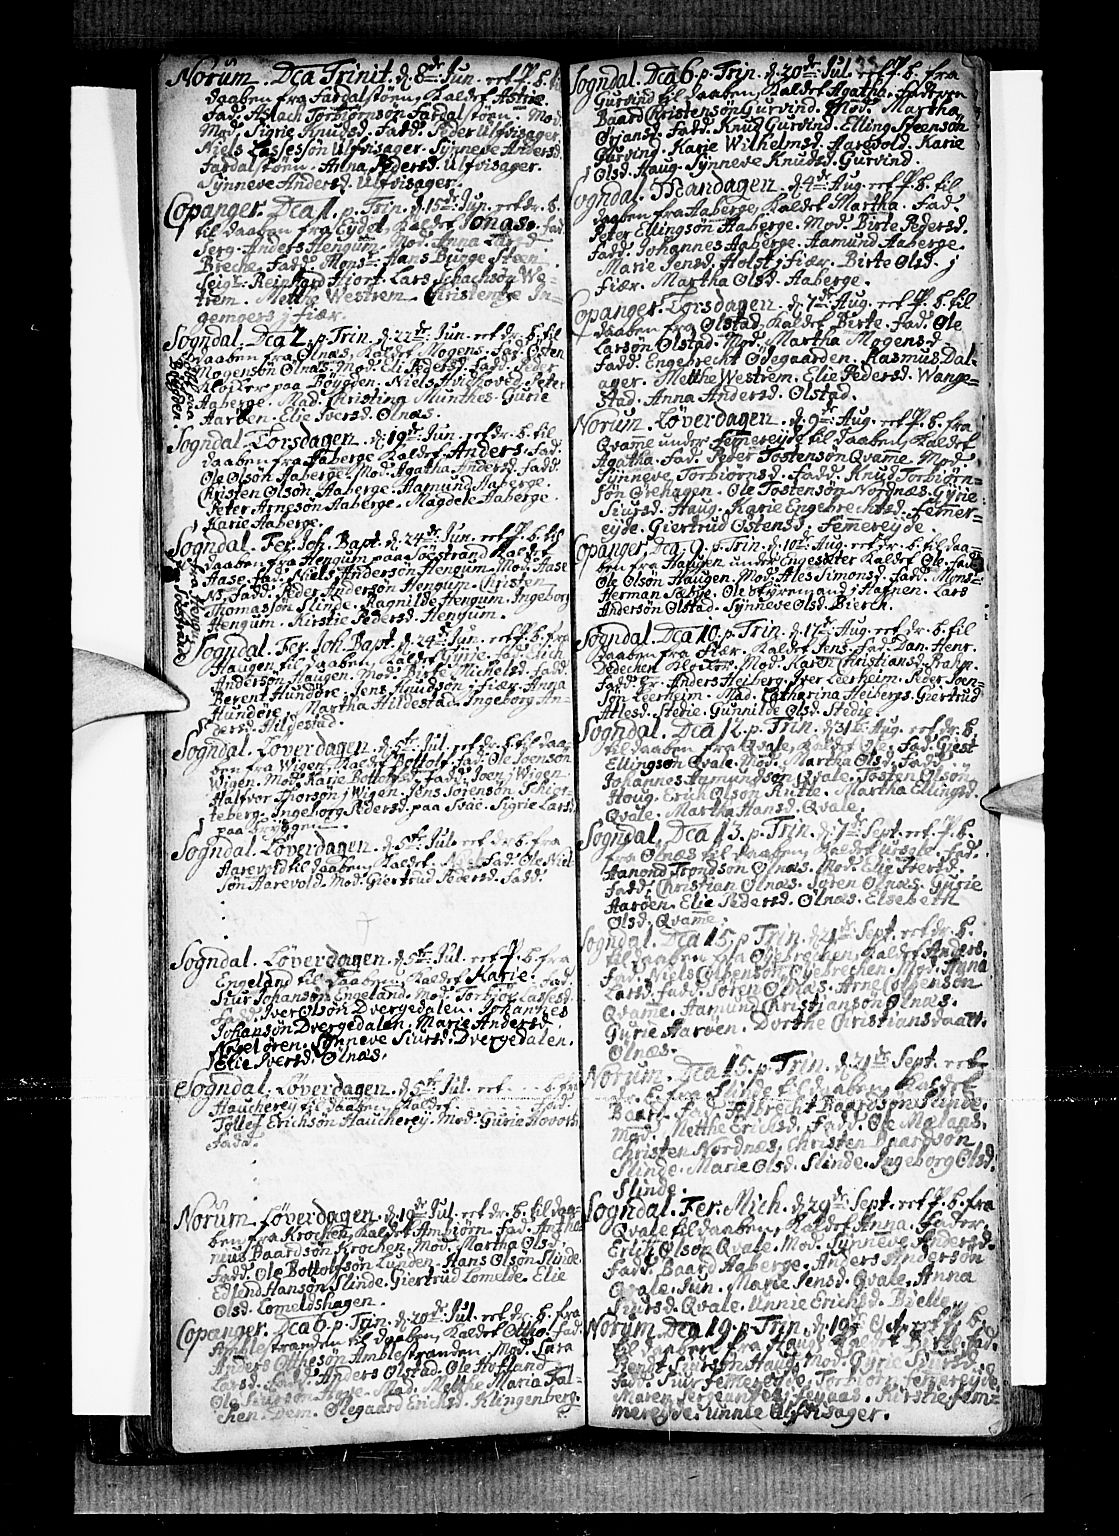 Norum. Dca Trinit. d. 8de Jun. ret P. b.
daaben fra Fardalstøen, kaldet Astrie.
Fad. Aslach Torbiørnsøn Fardalstøen. Mod.
Mod. Sigrie Knudsd. Fadd. Peder Ulfvisager.
Niels Lassesøn Ulfvisager. Synneve Andersd.
Fardalstøen. Anna Pedersd. Ulfvisager.
Synneve Andersd. Ulfvisager.
Copanger. Dca 1. p. Trin. d. 15de Jun. ret dr. b.
til daaben fra Eydet, kaldet Jonas. Fad.
Serg. Anders Hengum. Mod. Anna Larsd.
Breche. Fadd. Monsr. Hans Bugge Steen
Seigr. Reinhard Fiort. Lars Schachsøn We-
trem. Metthe Westrem. Christentze In-
gemgers j fiær.
Sogndal. Dca 2. p. Trin. d. 22de Jun. ret dr. b. til
daaben fra Ølnæs, kaldet Mogens. Fad. Østen
Mogensøn Ølnæs. Mod. Eli Pedersd. Fadd. Peder
Klocker paa Bøygden. Niels Hvidhoved. Peter
Aaberge. Mad. Christina Munthes. Gurie
Aarøen. Elie Iversd. Ølnæs.
Sogndal. Torsdagen. d. 19de Jun. ret dr. b. til
daaben fra Aaberge kaldet Anders. Fad.
Ole Olsøn Aaberge. Mod. Agatha Andersd. Fadd.
Christen Olsøn Aaberge. Aamund Aaberge.
Peter Arnesøn Aaberge. Magdele Aaberge.
Karie Aaberge.
Sogndal. Fer. Joh. Bapt. d. 24de Jun. ret P. b. til
daaben fra Hengum paa Soestrand kaldet
Aase. Fad. Niels Andersøn Hengum. Mod. Aase
Fadd. Peder Andersøn Hengum. Christen
Thomasøn Slinde. Ragnilde Hengum. Ingeborg
Hengum. Kirstie Pedersd. Hengum.
Sogndal. Fer. Joh. Bapt. d. 24de Jun. ret P. b. fra
Haugen til daaben, kaldet Gurie. Fad. Erich
Andersøn Haugen. Mod. Birte Michelsd. Fadd.
Berent Hundøre. Jens Knudsøn j fiær. Anna
Hundøre. Martha Hildestad. Ingeborg An-
dersd. Hildestad.
Sogndal. Løverdagen. d. 5te Jul. ret dr. b. til daa-
ben fra Wigen. kaldet Bottolf. Fad. Ole Joensøn
Wigen. Mod. Karie Bottolfsd. Fadd. Joen j Wigen.
Halfvor Thorsøn j Wigen. Jens Sørensøn Schier-
teberg. Ingeborg Pedersd. paa Svae. Sigrie Larsd.
paa bryggen.
Sogndal. Løverdagen. d. 5te Jul. ret dr. b. fra
Aarevold til daaben, kaldet Fad. Ole Niel-
søn Aarevold. Mod. Giertrud Pedersd. Fadd.
Sogndal. Løverdagen. d. 5te Jul. ret P. b. fra
Engeland til daaben, kaldet Karie. Fad.
Siur Johansøn Engeland. Mod. Torbiør Lassesd.
Fadd. Iver Olsøn Dvergedalen. Johannes
Johansøn Dvergedalen. Marie Andersd.
Synneve Siursd. Dvergedalen.
Elie Iversd. Ølnæs.
Sogndal. Løverdagen. d. 5te Jul. ret . . . b. fra
Haucherey til daaben, kaldet Fad.
Tollef Erichsøn Haucherey. Mod. Gurie
Fadd.
Norum. Løverdagen. d. 19de Jul. ret dr. b. til daa-
ben fra Krochen, kaldet Ambiørn. Fad. Antho-
nius Baardsøn Krochen. Mod. Martha Olsd.
Fadd. Ole Bottolfsøn Lunden. Hans Olsøn Slinde.
Edlend Hansøn Slinde. Giertrud Lomelde. Elie
Olsd. Lomeldshagen.
Copanger. Dca 6. p. Trin. d. 20de Jul. ret dr. b. fra
Amblestranden til daaben, kaldet Ottho. Fad.
Anders Otthesøn Amblestranden. Mod. Lara
Larsd. Fadd. Anders Olstad. Ole Hofland
Ole Mad. Metthe Maria Fal-
chen. Dem. Olegaard Erichsd. Klingenberg.
Sogndal. Dca 6. p. Trin. d. 20de Jul. ret P. b. fra
Gurvind til daaben, kaldet Agatha. Faderen
Baard Christensøn Gurvind. Mod. Martha
Ørjansd. Fadd. Knud Gurvind. Elling Steensøn
Gurvind. Karie Wilhelmsd. Aarevold. Karie
Olsd. Haug. Synneve Knudsd. Gurvind.
Sogndal. Mandagen. d. 4de Aug. ret P. b. til
daaben fra Aaberge, kaldet Martha. Fad.
Peter Ellingsøn Aaberge. Mod. Birte Pedersd.
Fadd. Johannes Aaberge. Aamund Aaberge.
Marie Jensd. Holst j fiær. Birte Olsd. j
fiær. Martha Olsd. Aaberge.
Copanger. Torsdagen. d. 7de Aug. ret P. b. til
daaben fra Olstad, kaldet Birte. Fad. Ole
Larsøn Olstad. Mod. Martha Mogensd.
Fadd. Engebrecht Ødegaarden. Rasmus Dal-
ager. Metthe Westrem. Elie Pedersd. Wange-
stad. Anna Andersd. Olstad.
Norum. Løverdagen. d. 9de Aug. ret P. b. fra
Qvame under Femereyde til daaben, kaldet
Agatha. Fad. Peder Tostensøn Qvame. Mod.
Synneve Torbiørnsd. Fadd. Knud Torbiørn-
søn Ørehagen. Ole Tostensøn Nordnæs. Gurie
Siursd. Haug. Karie Engebrechtsd. Femer-
eyde. Giertrud Østensd. Femereyde.
Copanger. Dca 9. p. Trin. d. 10de Aug. ret dr. b. til daa-
ben fra Haugen under Engesæter kaldet Ole. Fad.
Ole Olsøn Haugen. Mod. Ales Simonsd. Fadd. Mons.
Herman Sæbye. Ole Styremand j Hafnen. Lars
Andersøn Olstad. Synneve Olsd. Bierch.
Sogndal. Dca 10. p. Trin. d. 17de Aug. ret dr. b. til
daaben fra Fiær. kaldet Jens. Fad. Dan. Henr.
Dedechen Klocker. Mod. Karen Christiansd. Frahm.
Fadd. Hr. Anders Heiberg. Iver Leerheim. Peder Joen-
søn Leerheim. Mad. Catharina Heibergs. Giertrud
Attesd. Stedie. Gunnilde Olsd. Stedie.
Sogndal. Dca 12. p. Trin. d. 31te Aug. ret dr. b.
til daaben fra Qvale, kaldet Ole. Fad. Giest
Ellingsøn Qvale. Mod. Martha Olsd. Fadd.
Johannes Aamundsøn Qvale. Tosten Olsøn
Houg. Erich Olsøn Rutle. Martha Ellingsd.
Qvale. Martha Hansd. Qvale.
Sogndal. Dca 13. p. Trin. d. 7de Sept. ret P. b.
fra Ølnæs til daaben, kaldet Ursale. Fad.
Aanond Trondsøn Ølnæs. Mod. Elie Iversd.
Fadd. Christian Ølnæs. Søren Ølnæs. Gurie
Aarøen. Elie Pedersd. Ølnæs. Elsebeth
Olsd. Qvame.
Sogndal. Dca 15. p. Trin. d. 21de Sept. ret dr. b.
til daaben fra Øyebrechen, kaldet Anders.
Fad. Niels Colbensøn Øyebrechen. Mod. Anna
Larsd. Fadd. Søren Ølnæs. Arne Colbensøn
Qvame. Aamund Christiansøn Ølnæs.
Gurie Aarøen. Dorthe Christiansdaatt.
Ølnæs.
Norum. Dca 15. p. Trin. d. 21de Sept. ret
dr. b. fra Slinde til daaben, kaldet
Baard. Fad. Albrecht Baardsøn Slinde.
Mod. Metthe Erichsd. Fadd. Ole Maland.
Christen Nordnæs. Christen Baardsøn
Slinde. Marie Olsd. Slinde. Ingeborg Olsd.
Slinde.
Sogndal. Fer. Mich. d. 29de Sept. ret P. b. fra
Qvale til daaben, kaldet Anna. Fader
Erich Olsøn Qvale. Mod. Synneve Andersd.
Fadd. Baard Aaberge. Anders Andersøn
Qvale. Jun. Marie Jensd. Qvale. Anna
Siursd. Qvale. Unnie Erichsd. Bielle.
Norum. Dca 19. p. Trin. d. 19de Oct. ret P. b.
til daaben fra Haug kaldet Fad.
Bendt Siursøn Haug. Mod. Gurie Siursd.
Fadd. Siur Femereyde. Torbiørn Femereyde.
Maren Kirstie Fem-
mereyde. Unnie Ulfvisager.